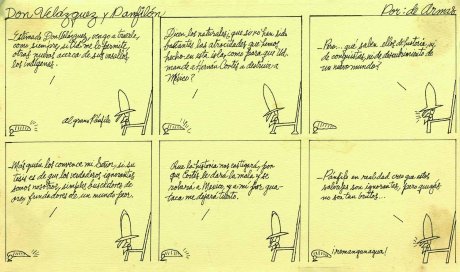 Don Velázquez y Panfilón
Por: de Armas
-Estimado Don Velázquez, vengo a traerle,
como siempre, si Ud. me lo permite,
otras quejas acerca de sus vasallos
los indígenas.
al grano Pánfilo
-Dicen los naturales, que no han sido
bastante las atrocidades que hemos
hecho en esta isla, como para que Ud.
mande a Hernán Cortés a destruir a
México?
-Pero... qué saben ellos de historia y
de conquistas, ni de descubrimiento de
un nuevo mundo?
-Mas quién los convence mi Señor, si su
tesis es de que los verdaderos ignorantes
somos nosotros, simples buscadores de
oro y fundadores de un mundo peor.
-Que la historia nos castigará, por
que Cortés le dará la mala y se
robará a México, y a mi por
me dejará tuerto.
-Pánfilo en realidad creo que estos
salvajes son ignorantes, pero quizás
no tan brutos...
¡